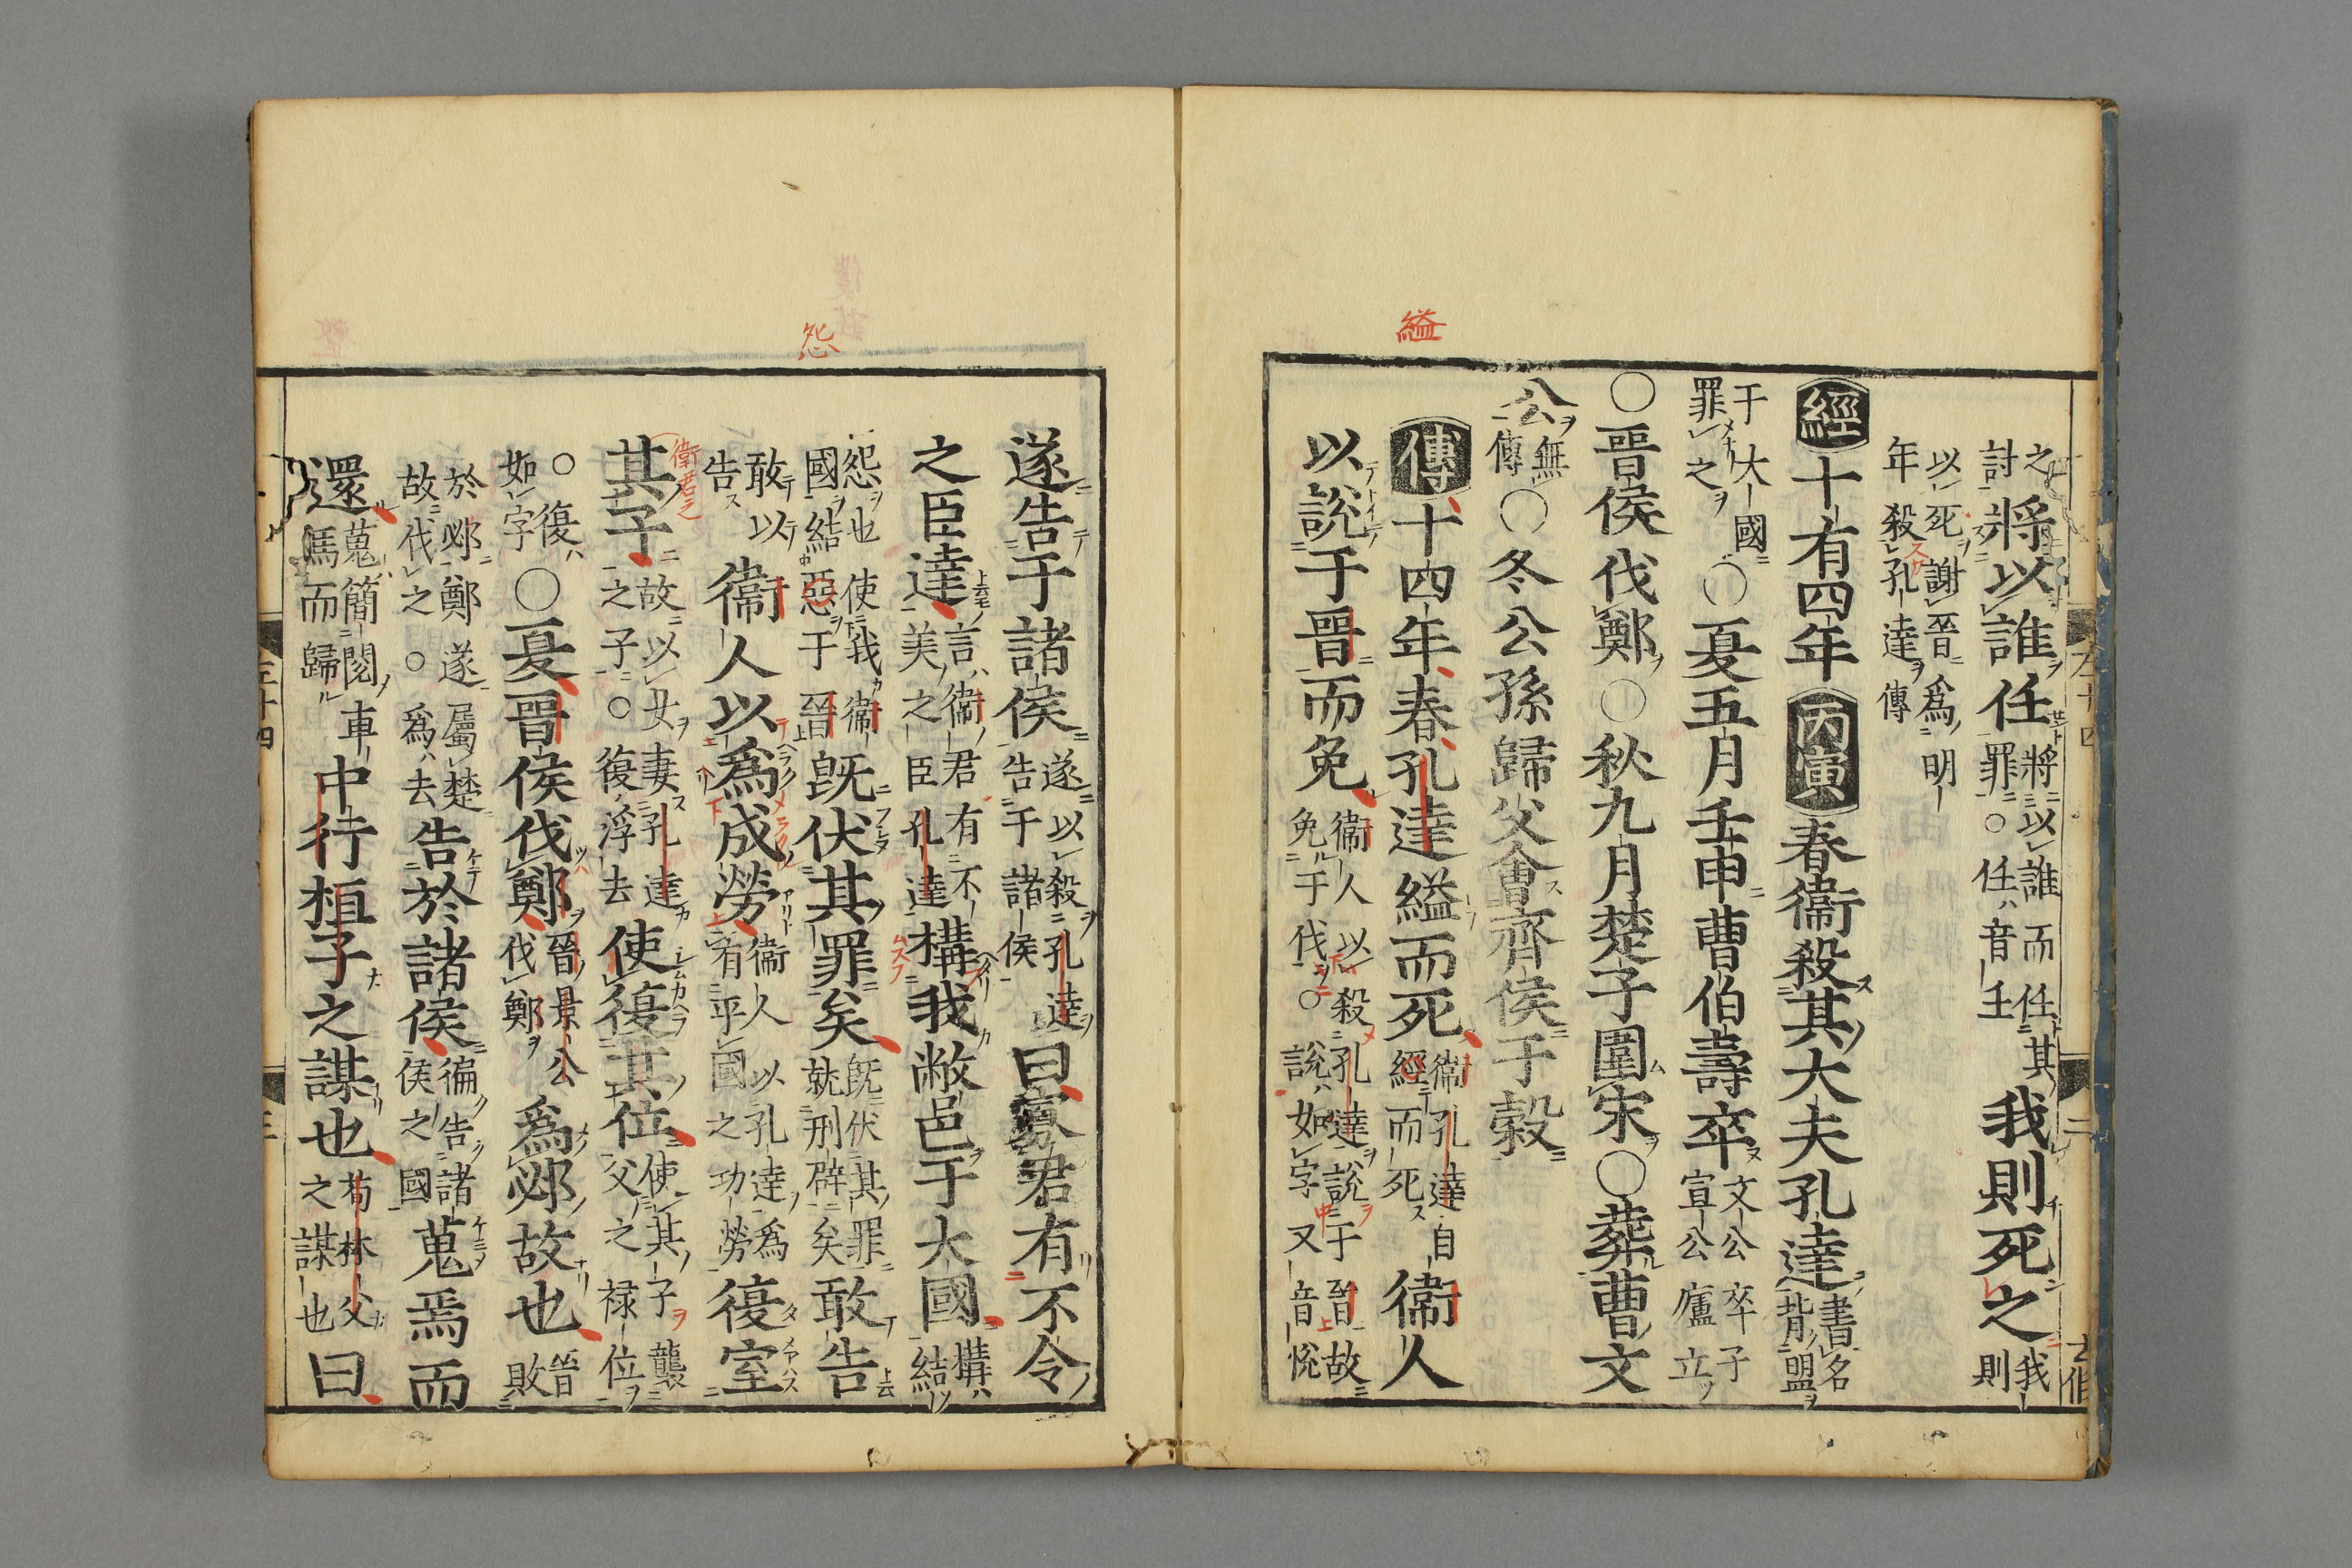 之討將以誰任將以誰而任其罪○任音壬我則死之我則
以死謝晉爲明年殺孔達傳
經十有四年丙寅春衞殺其大夫孔達書名背盟
于大國罪之○夏五月壬申曹伯壽卒文公卒子宣公廬立
○晉侯伐鄭○秋九月楚子圍宋○葬曹文
公無傳○冬公孫歸父會齊侯于穀
縊
傳十四年春孔達縊而死衞孔達自經而死衞人
以說于晉而免衞人以殺孔達說于晉故免于伐○說如字又音悅
遂告于諸侯遂以殺孔達告于諸侯曰寡君有不令
之臣達言衞君有不美之臣孔達構我敝邑于大國構結
怨
怨也使我衞國結惡于晉既伏其罪矣既伏其罪就刑辟矣敢告
敢以告衞人以爲成勞衞人以孔達爲有平國之功勞復室
衞君之
其子故以女妻孔達之子○復浮去使復其位使其子襲父之禄位
○復如字○夏晉侯伐鄭晉景公伐鄭爲邲故也晉敗
於邲鄭遂屬楚故伐之○爲去告於諸侯徧告諸侯之國蒐焉而
還蒐簡閱車馬而歸中行桓子之謀也荀林父之謀也曰